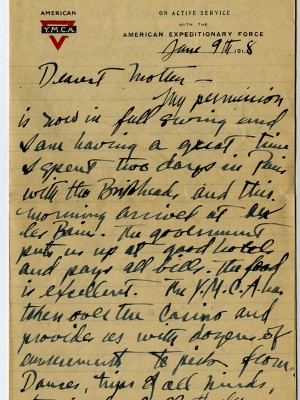 AMERICAN
Y.M.C.A.
ON ACTIVE SERVICE
WITH THE
AMERICAN EXPEDITIONARY FORCE
June 9th 1918
Dearest Mother –
My permission
is now in full swing and
I am having a great time
I spent two days in Paris
with the and this
morning arrived at Aix
les Bain. The government
puts us up at good hotels
and pays all bills. the food
is excellent. The Y.M.C.A. has
taken over the Casino and
provides us with dozens of
amusements to pick from
Dances, trips of all kinds,